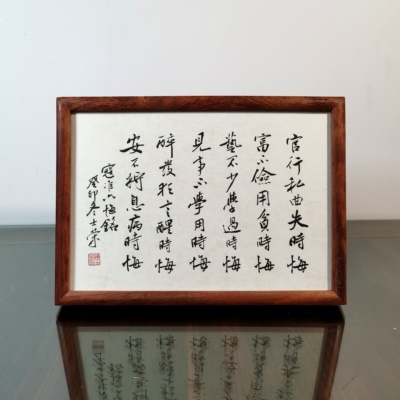 官行私曲失時悔
富不儉用貧時悔
藝不少學過時悔
見事不學用時悔
醉發狂言醒時悔
安不將息病時悔
寇準六悔銘
癸卯冬士榮